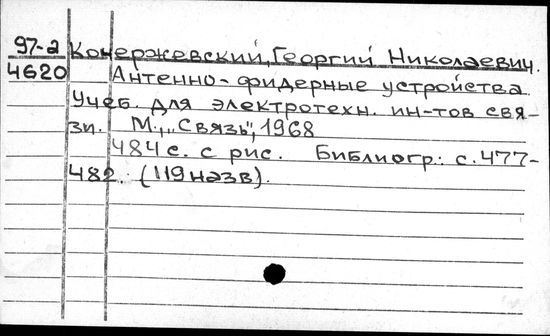 97-2 Кочержевский, Георгий Николаевич.
4620 Антенно-фидерные устройства.
Учеб. для электротехн. ин-тов свя-
зи. М., "Связь", 1968
484 с. с рис. Библиогр.: с. 477-
482. (119 назв).